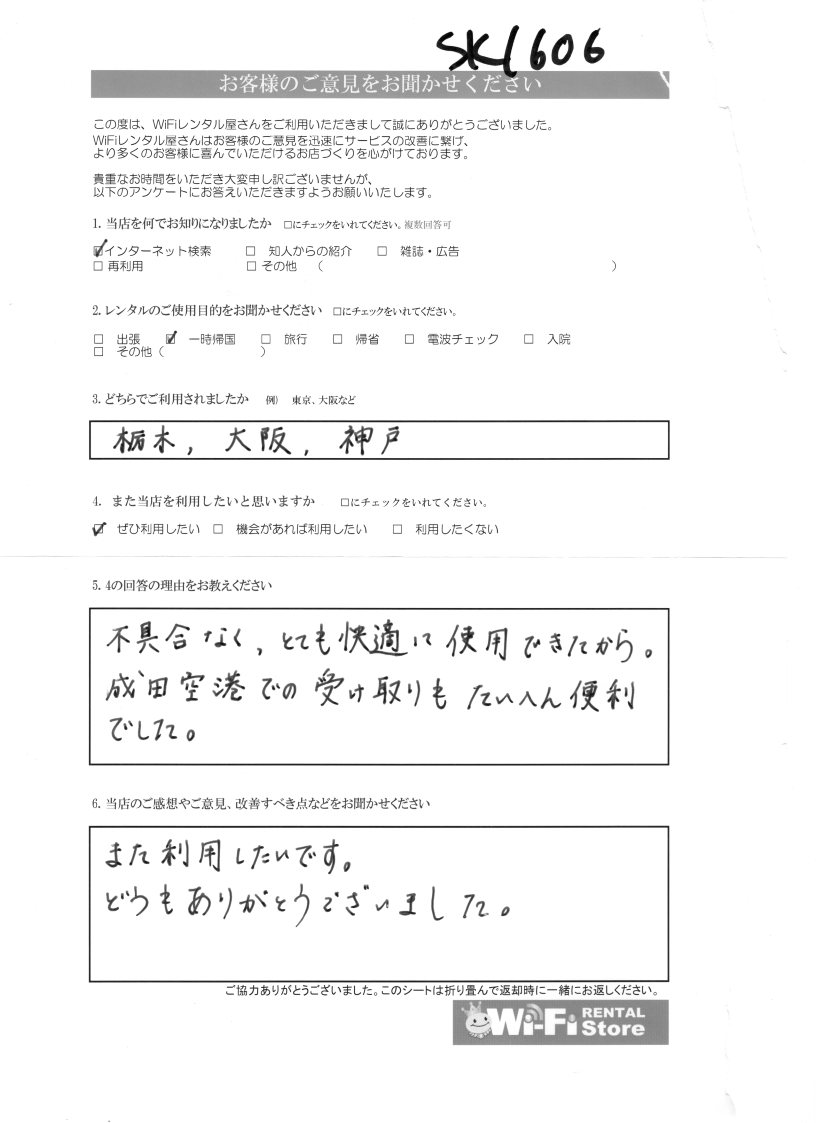 SK1606
お客様のご意見をお聞かせください
この度は、WiFiレンタル屋さんをご利用いただきまして誠にありがとうございました。
WiFiレンタル屋さんはお客様のご意見を迅速にサービスの改善に繋げ、
より多くのお客様に喜んでいただけるお店づくりを心がけております。
貴重なお時間をいただき大変申し訳ございませんが、
以下のアンケートにお答えいただきますようお願いいたします。
1. 当店を何でお知りになりましたか □にチェックをいれてください。複数回答可
☑インターネット検索 □ 知人からの紹介 □ 雑誌・広告
□ 再利用 □ その他 ( )
2. レンタルのご使用目的をお聞かせください □にチェックをいれてください。
□ 出張 ☑ 一時帰国 □ 旅行 □ 帰省 □ 電波チェック □ 入院
□ その他 ( )
3. どちらでご利用されましたか 例) 東京、大阪など
栃木, 大阪, 神戸
4. また当店を利用したいと思いますか □にチェックをいれてください。
☑ ぜひ利用したい □ 機会があれば利用したい □ 利用したくない
5. 4の回答の理由をお教えください
不具合なく, とても快適に使用できたから。
成田空港での受け取りもたいへん便利
でした。
6. 当店のご感想やご意見、改善すべき点などをお聞かせください
また利用したいです。
どうもありがとうございました。
ご協力ありがとうございました。このシートは折り畳んで返却時に一緒にお返しください。
Wi-Fi RENTAL Store